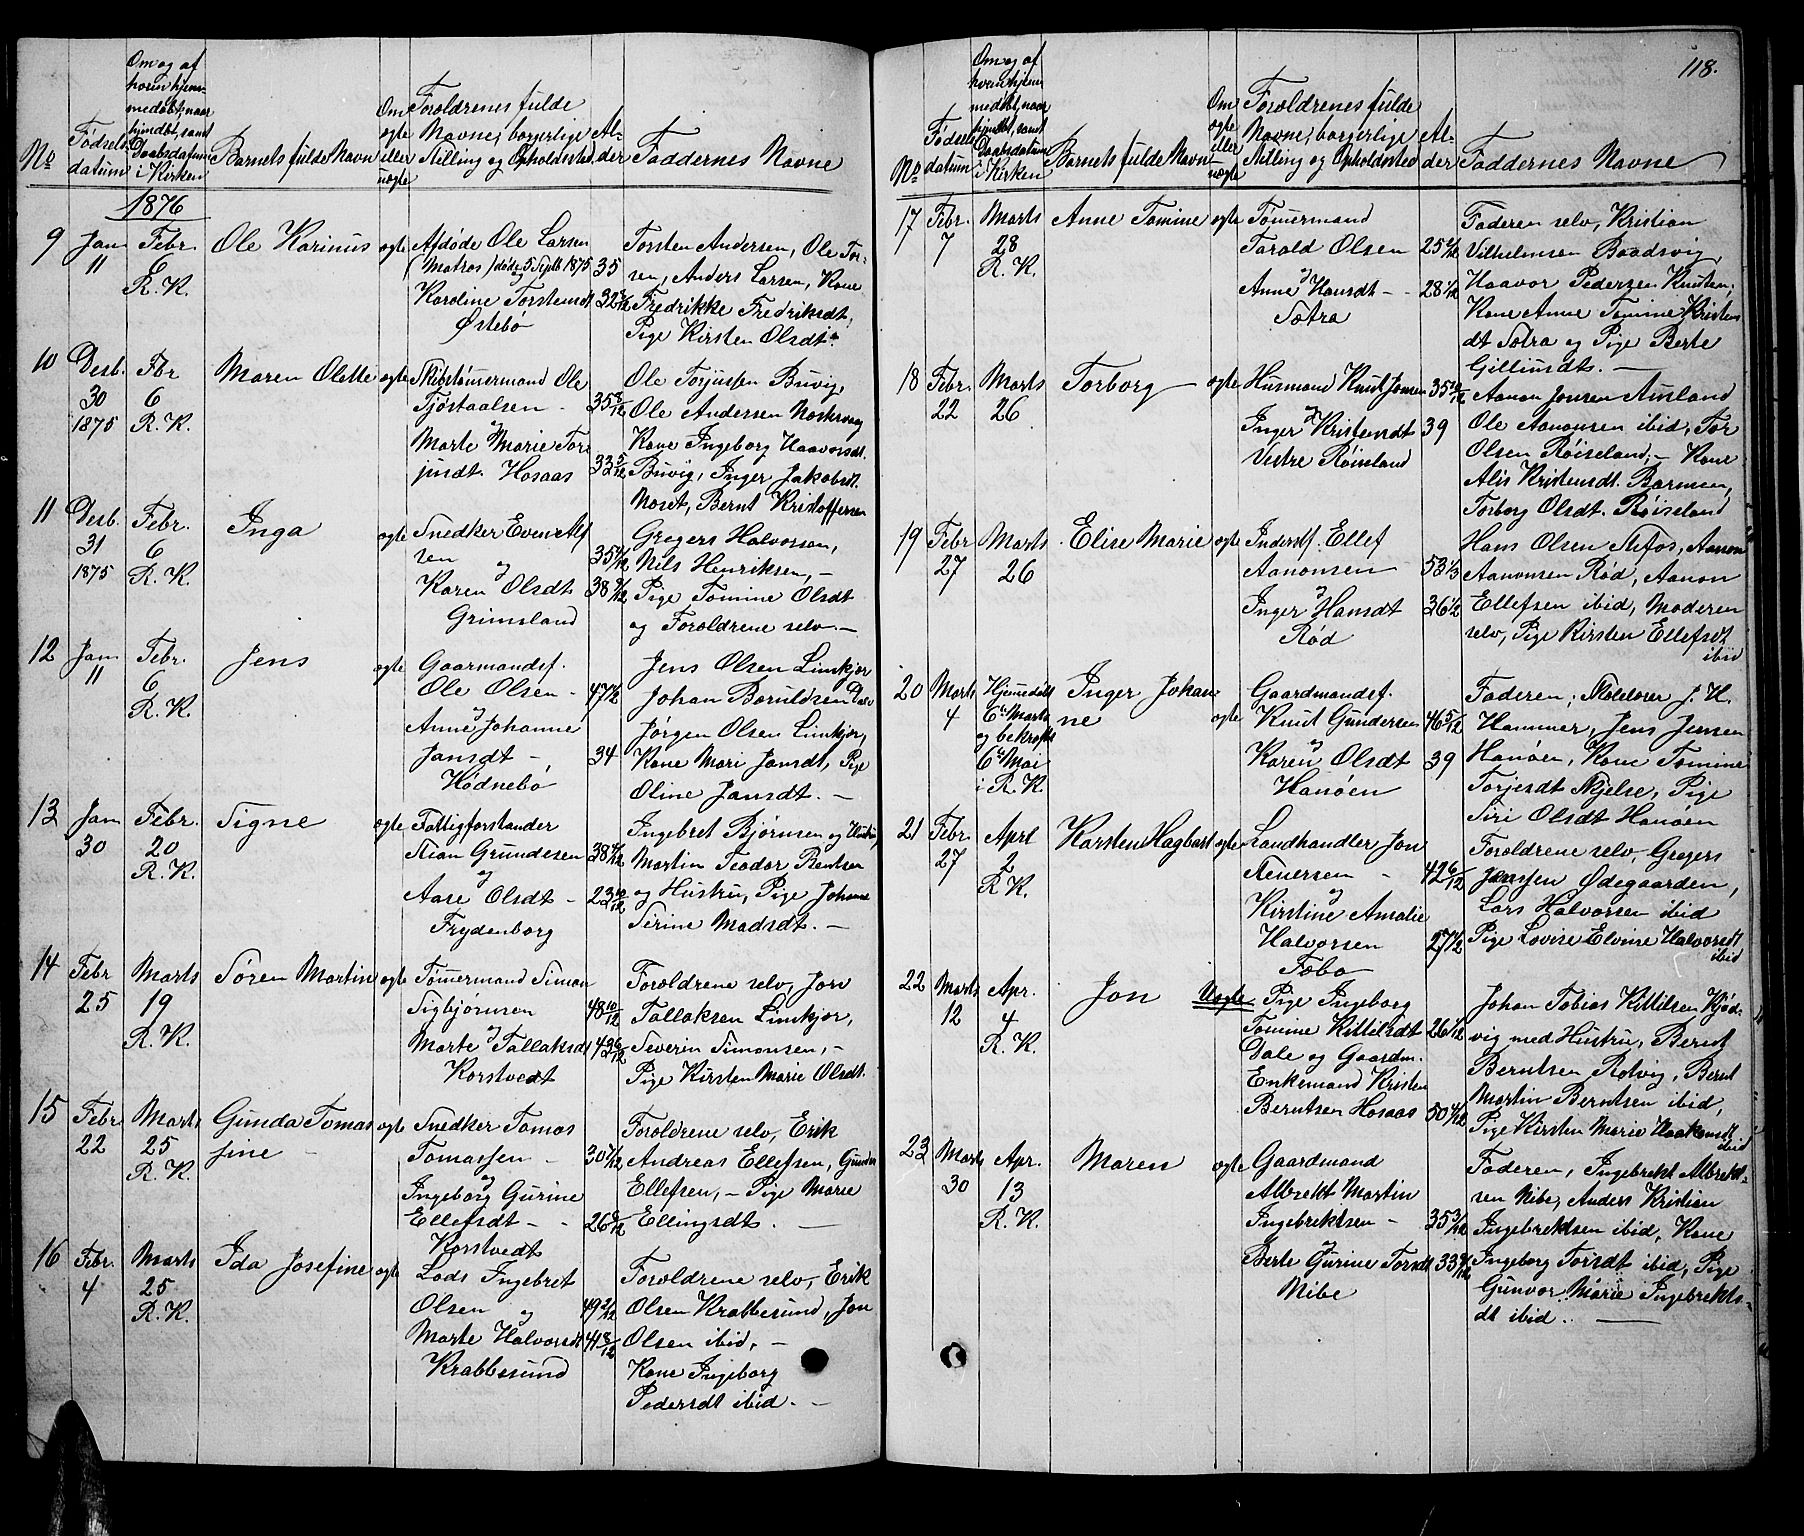 118.
No
Fødsels-
datum
Om og af
hvem hjem-
medøbt, naar
hjmdbt, samt
Daabsdatum
i Kirken
Barnets fulde Navn
Om
ægte
eller
uægte
Forældrenes fulde
Navne, borgerlige
Stilling og Opholdssted
Al-
der
Faddernes Navne
1876
9 Jan 11
Febr. 6 R. K.
Ole Karinus
ægte
Afdøde Ole Larsen
(Matros) døde 5 Septb 1875 35
og
Karoline Torstensdt
Østebø
Torsten Andersen, Ole Tor-
sen, Anders Larsen, Kone
Fredrikke Fredriksdt,
Pige Kirsten Olsdt.
10 Desb. 30 1875
Fbr 6 R. K.
Maren Olette
ægte
Skibstømermand Ole
Tjøstaalsen - 35 8/12
og
Marte Marie Tor
jusdt. Hosaas 33 5/12
Ole Torjussen Buvig,
Ole Andersen
Kone Ingeborg Haavorsdt.
Buvig, Inger Jakobsdt.
Noset, Bernt Kristoffersen
11 Desb. 31 1875
Febr. 6 R. K.
Inga
ægte
Snedker Even Alf
sen
og
Karen Olsdt
Grimsland
Gregers Halvorsen,
Nils Henriksen, -
Pige Tomine Olsdt
og Forældrene selv. -
12 Jan 11
Febr. 6 R. K.
Jens
ægte
Gaarmandsf.
Ole Olsen -
og
Anne Johanne
Jansdt - 34
Hødnebø
Jens Olsen Limkjær
Johan Boruldsen
Jørgen Olsen Limkjær,
Kone Mari Jansdt, Pige
Oline Jansdt. -
13 Jan 30
Febr. 20 R. K.
Signe
ægte
Fattigforstander
Stian Grundesen
og
Aase Olsdt - 23 10/12
Frydenborg
Ingebret Bjørnsen og Hustru,
Martin Teodor Rentsen
og Hustru, Pige Johanne
Sirine Madsdt. -
14 Febr 25
Marts 19 R. K.
Søren Martin
ægte
Tømermand Simon
Sigbjørnsen 48 10/12
og
Marte Tallaksdt 42 6/12
Korstvedt
Forældrene selv, Jørn
Tallaksen Limkjær,
Severin Simonsen, -
Pige Kirsten Marie Olsdt.
15 Febr 22
Marts 25 R. K.
Gunda Tomas
sine -
ægte
Snedker Tomas
Tomassen - 30 7/12
og
Ingeborg Gurine
Ellefsdt - - 26 8/12
Korstvedt
Forældrene selv, Erik
Andreas Ellefsen, Gunder
Ellefsen, - Pige Marie
Ellingsdt. -
16 Febr. 4
Marts 25 R. K.
Ida Josefine
ægte
Lods Ingebret
Olsen og 49 2/12
Marte Halvorsdt 41 8/12
Krabbesund
Forældrene selv, Erik
Olsen Krabbesund, Jon
Olsen ibid, -
Kone Ingeborg
Pedersdt ibid. -
No
Fødsels
datum
Om og af
hvem hjem
medøbt, naar
hjmdbt, samt
Daabsdatum
i Kirken
Barnets fulde Navn
Om
ægte
eller
uægte
Forældrenes fulde
Navne, borgerlige
Stilling og Opholdssted
Al-
der
Faddernes Navne
17 Febr. 7
Marts 28 R. K.
Anne Tomine
ægte
Tømermand
Tarald Olsen
og
Anne Hansdt -
Sætra
Faderen selv, Kristian
Vilhelmsen Baadsvig,
Haavor Pedersen Knuten,
Kone Anne Tomine Kristens
dt Sætra og Pige Berte
Gillundt. -
18 Febr. 22
Marts 26
Torborg
ægte
Husmand Knut Jonsen
og
Inger Kristensdt 39
Vestre Røisland
Aanon Jonsen Ausland
Ole Aanonsen ibid, Tor
Olsen Røiseland, - Kone
Alis Kristensdt. Barmen,
Torborg Olsdt. Røiseland
19 Febr 27
Marts 26
Elise Marie
ægte
Inderstf. Ellef
Aanonsen
og
Inger Hansdt
Rød
Hans Olsen Stifos, Aanon
Aanonsen Rød, Aanon
Ellefsen ibid, Moderen
selv, Pige Kirsten Ellefsdt
ibid
20 Marts 4
Hjemdøbt
6te Marts
og bekræft
6te Mai
i R. K.
Inger Johan
ne
ægte
Gaardmandsf.
Knut Gundersen 46 5/12
og
Karen Olsdt 39
Hanøen
Faderen, Skolelærer J. H.
Hammer, Jens Jensen
Hanøen, Kone Tomine
Torjesdt Skjelse, Pige
Siri Olsdt Hanøen
21 Febr. 27
Aprl 2 R. K.
Karsten Hagbart
ægte
Landhandler Jon
Stenersen - 42 6/12
og
Kirstine Amalie
Halvorsen
Fæbo
Forældrene selv, Gregers
Jenssen Ødegaarden,
Lars Halvorsen ibid
Pige Lovise Elvine Halvorsdt
ibid
22 Marts 12
Apr. 4 R. K.
Jon
Uægte
Pige Ingeborg
Tomine Kittilsdt
Dale og Gaardm.
Enkemand Kristen
Berntsen Hosaas
Johan Tobias Kittilsen Kjød-
vig med Hustru, Berent
Berntsen Rotvig, Bernt
Martin Berntsen ibid,
Pige Kirsten Marie Haakonsdt
ibid
23 Marts 30
Apr. 13 R. K.
Maren
ægte
Gaardmand
Albrekt Martin
Ingebrektsen - 35 3/12
Berte Gurine Torsdt
Nibe
Faderen, Ingebrekt Albrekt-
sen Nibe, Anders Kristian
Ingebrektsen ibid, Kone
Ingeborg Torsdt ibid, Pige
Gunvor Marie Ingebrekts-
dt ibid. -